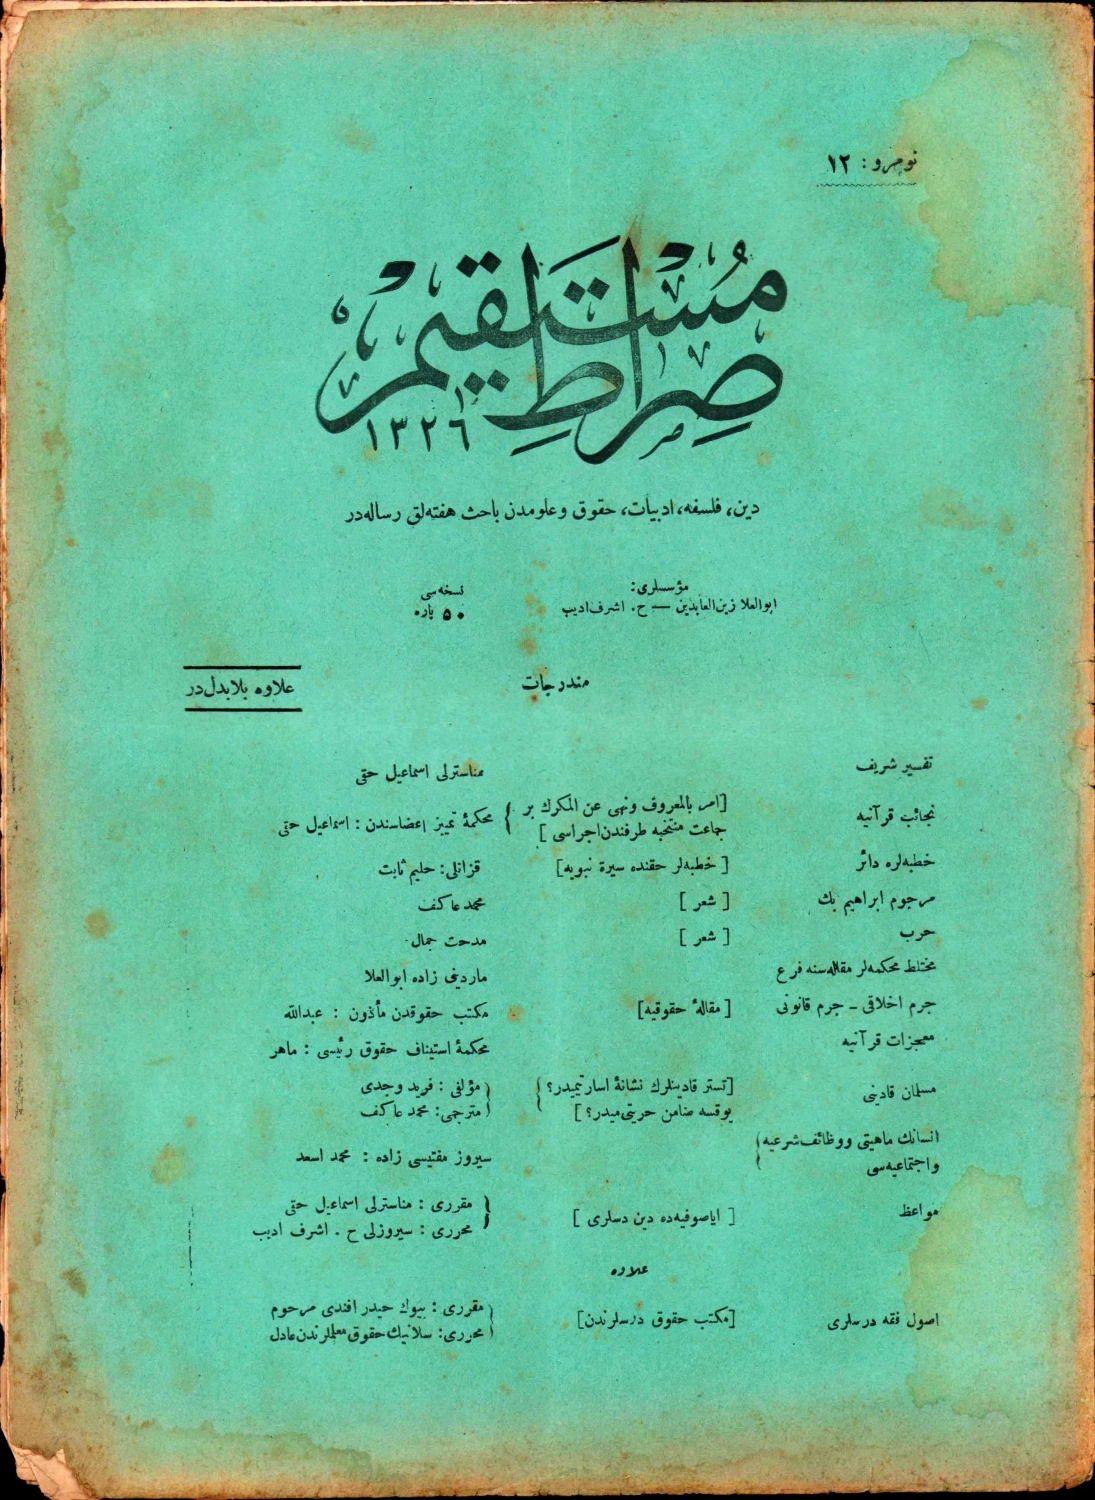 نومرو: ١٢
صراط مستقيم
١٣٢٦
دين، فلسفه، ادبيات، حقوق و علومدن باحث هفته‌لق رساله‌در
مؤسسلری:
ابوالعلا زين‌العابدين — ح. اشرف اديب
نسخه‌سی
٥٠ پاره
مندرجات
علاوه بلابدل‌در
تفسير شريف مناسترلی اسماعيل حقی
نجائب قرآنيه [امر بالمعروف ونهی عن المنكرك بر جماعت منتخبه طرفندن اجراسی] محكمهٔ تمييز اعضاسندن: اسماعيل حقی
خطبه‌لره دائر [خطبه‌لر حقنده سيرة نبويه] قزانلی: حليم ثابت
مرحوم ابراهيم بك [شعر] محمد عاكف
حرب [شعر] مدحت جمال
مختلط محكمه‌لر مقاله‌سنه فرع ماردينی زاده ابوالعلا
جرم اخلاقی - جرم قانونی [مقالهٔ حقوقيه] مكتب حقوقدن مأذون: عبدالله
معجزات قرآنيه محكمهٔ استيناف حقوق رئيسی: ماهر
مسلمان قادينی [تستر قادينلرك نشانهٔ اسارتيميدر؟ يوقسه ضامن حريتی‌ميدر؟] مؤلفی: فريد وجدی
مترجمی: محمد عاكف
انسانك ماهيتی ووظائف شرعيه واجتماعيه‌سی سيروز مفتيسی زاده: محمد اسعد
مواعظ [اياصوفيه‌ده دين درسلری] مقرری: مناسترلی اسماعيل حقی
محرری: سيروزلی ح. اشرف اديب
علاوه
اصول فقه درسلری [مكتب حقوق درسلرندن] مقرری: بيوك حيدر افندی مرحوم
محرری: سلانيك حقوق معلملرندن عادل